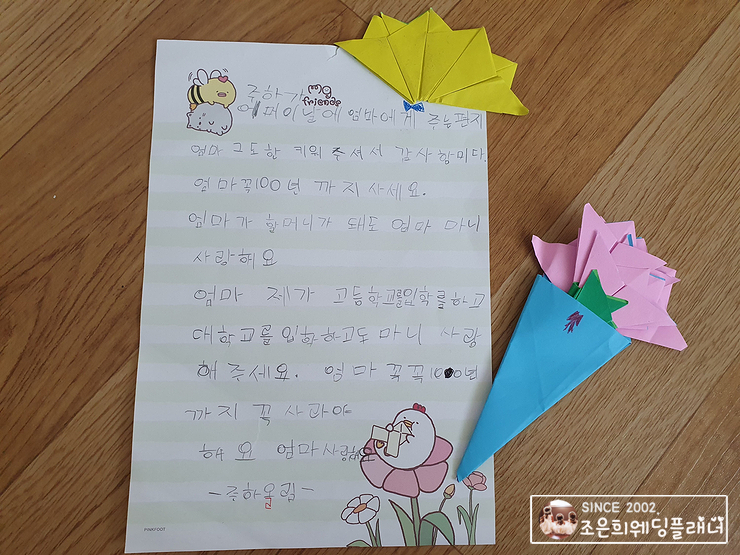 주하가
my
friends
어머이날에 엄마에게 주는편지
엄마 그도한 키워 주셔서 감사함미다.
엄마꼭100년 까지사세요.
엄마가 할머니가 돼도 엄마 마니
사랑해요
엄마 제가 고등학교를입학를하고
대학교를 입학하고도 마니 사랑
해주세요. 엄마 꼭꼭100년
까지 꼭 사라야
해요 엄마사랑해요
-주하올림-
PINKFOOT
SINCE 2002.
조은희웨딩플래너